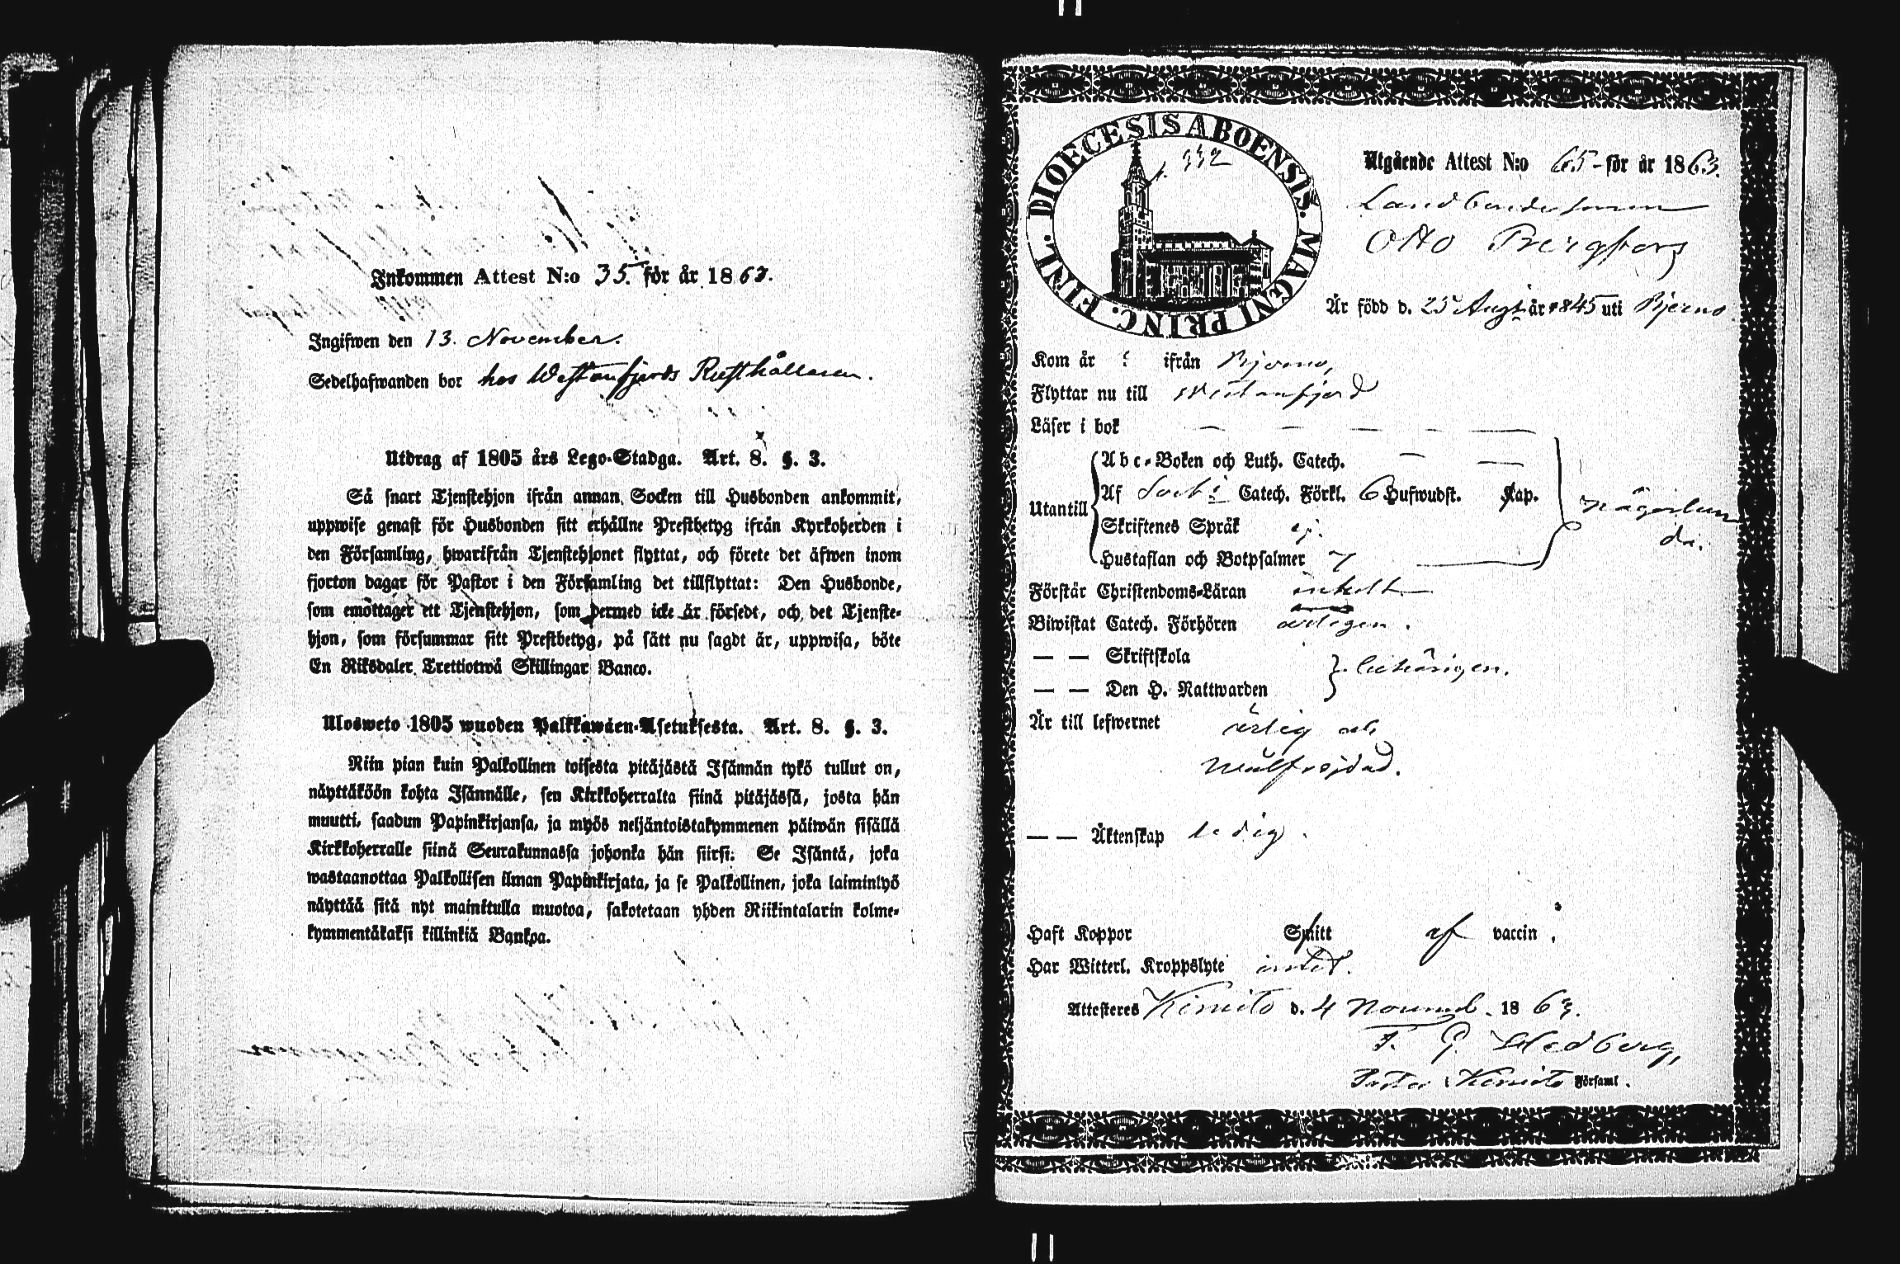 Inkommen Attest N:o 35. för år 1863.
Ingifwen den 13. November.
Sedelhafwanden bor hos Westanfjerds Rusthållaren.
Utdrag af 1805 års Lego-Stadga. Art. 8. §. 3.
Så snart Tjenstehjon ifrån annan Socken till Husbonden ankommit,
uppwise genast för Husbonden sitt erhållne Prestbetyg ifrån Kyrkoherden i
den Församling, hwarifrån Tjenstehjonet flyttat, och förete det äfwen inom
fjorton dagar för Pastor i den Församling det tillflyttat: Den Husbonde,
som emottager ett Tjenstehjon, som dermed icke är försedt, och det Tjenste-
hjon, som försummar sitt Prestbetyg, på sätt nu sagdt är, uppwisa, böte
En Riksdaler Trettiotwå Skillingar Banco.
Ulosweto 1805 wuoden Palkkawäen-Asetuksesta. Art. 8. §. 3.
Niin pian kuin Palkollinen toisesta pitäjästä Isännän tykö tullut on,
näyttäköön kohta Isännälle, sen Kirkkoherralta siinä pitäjässä, josta hän
muutti, saadun Papinkirjansa, ja myös neljäntoistakymmenen päiwän sisällä
Kirkkoherralle siinä Seurakunnassa johonka hän siirsi: Se Isäntä, joka
wastaanottaa Palkollisen ilman Papinkirjata, ja se Palkollinen, joka laiminlyö
näyttää sitä nyt mainitulla muotoa, sakotetaan yhden Riikintalarin kolme-
kymmentäkaksi killinkiä Bankoa.
DIOECESIS ABOENSIS. MAGNI PRINC. FINL.
p. 332
Utgående Attest N:o 65 för år 1863.
Landbondesonen
Otto Bergfors
Är född d. 25 Augt år 1845 uti Bjerno
Kom år ? ifrån Bjerno,
Flyttar nu till Westanfjerd
Läser i bok
Utantill
Abc-Boken och Luth. Catech.
Af Catech. Förkl. 6 Hufwudst. Kap.
Skriftenes Språk ej.
Hustaflan och Botpsalmer 7
någorlun
da.
Förstår Christendoms-Läran enkelt
Biwistat Catech. Förhören årligen.
— — Skriftskola
— — Den H. Nattwarden
behörigen.
Är till lefwernet ärlig och
wälfrejdad.
— — Äktenskap ledig.
Haft Koppor Smitt af vaccin.
Har Witterl. Kroppslyte intet.
Attesteres Kimito d. 4 Novemb. 1863.
F. G. Hedberg,
Pastor i Kimito Församl.